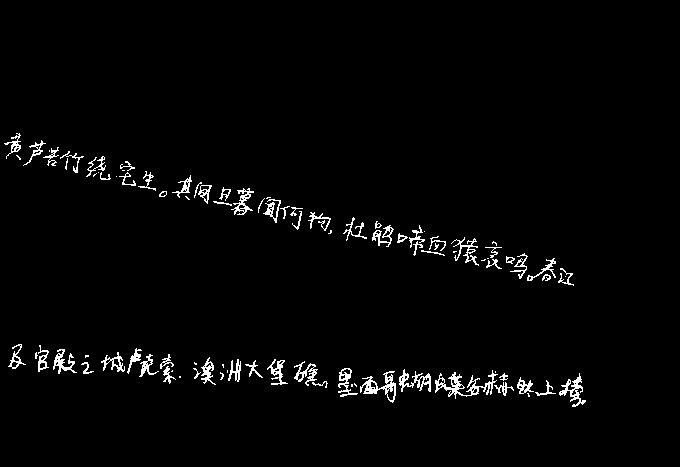 黄芦苦竹绕宅生。其间旦暮闻何物,杜鹃啼血猿哀鸣。春江
及宫殿之城卢克索、澳洲大堡礁,墨西哥蝴蝶谷赫然上榜。